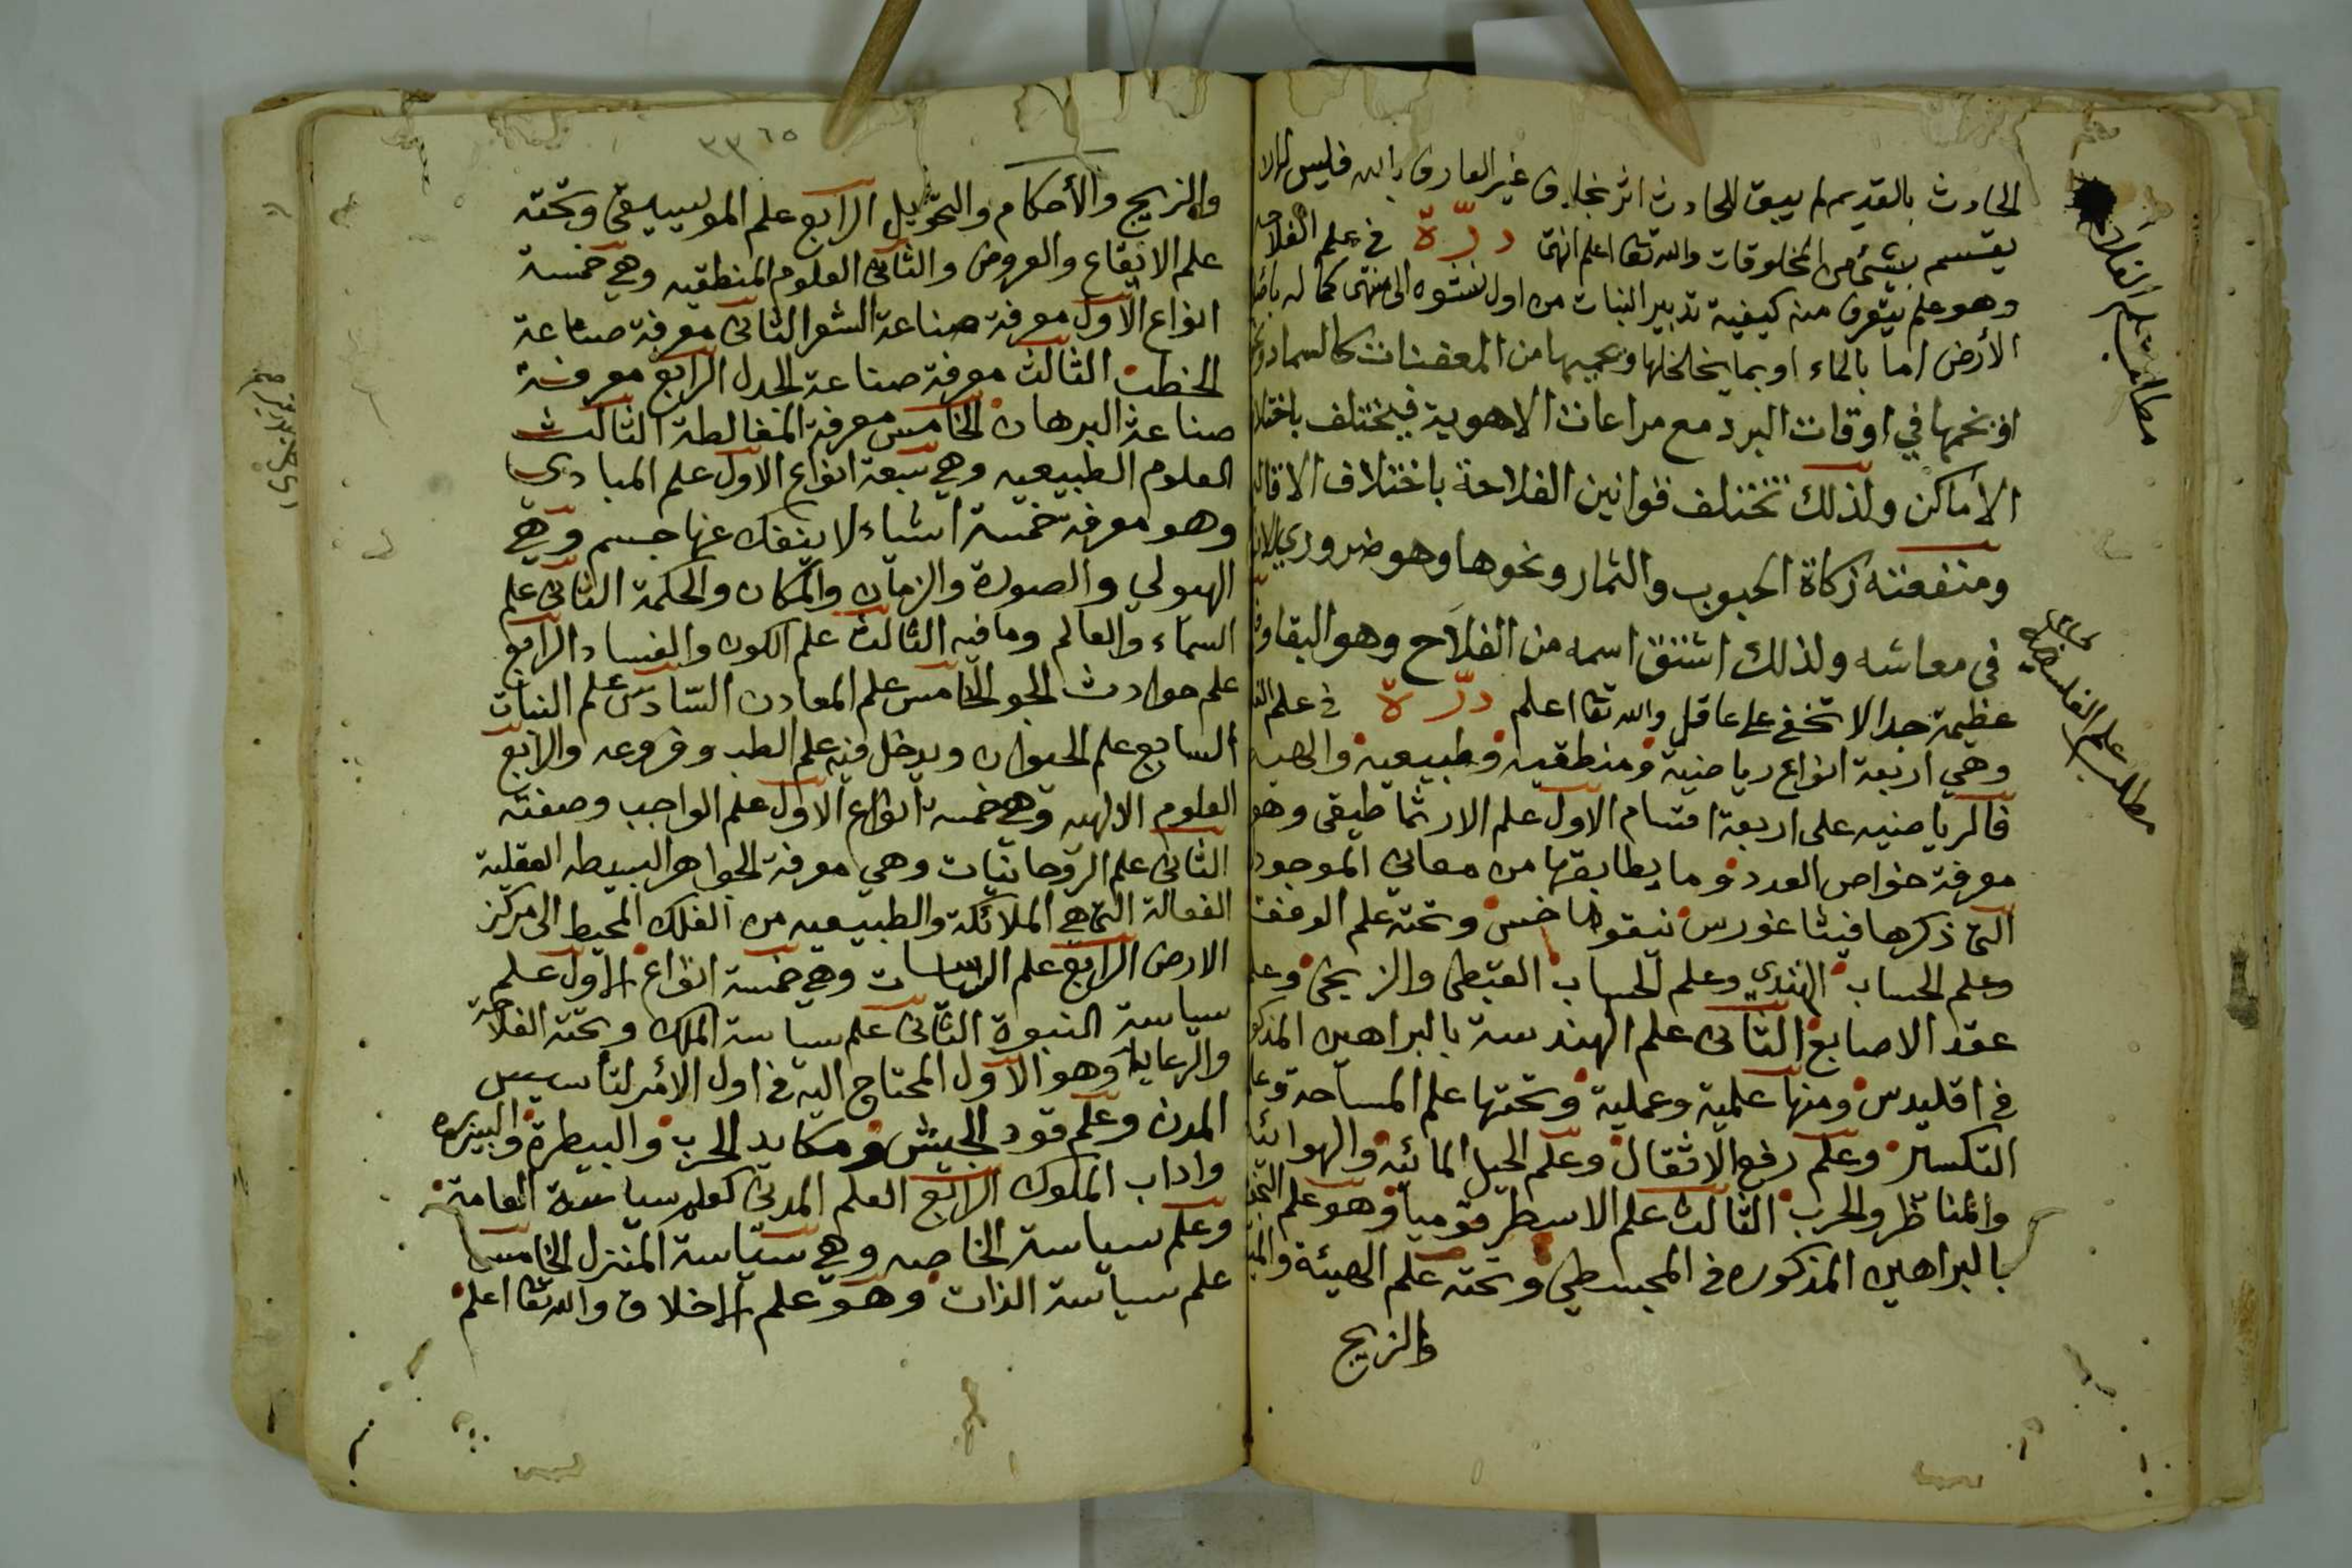 الحادث بالقديم لم يبق للحادث اثر بخلاف غير العارف بالله فليس له الا
يقسم بشئ من المخلوقات والله تعا اعلم انتهى درّة في علم الفلاحه
وهو علم يتعرف منه كيفية تدبير النبات من اول نشوه الى منتهى كماله
الأرض اما بالماء او بما يخلخلها ويحميها من المعفنات كالسماد
او بحميها في اوقات البرد مع مراعات الاهوية فيختلف باختلا
الاماكن ولذلك تختلف قوانين الفلاحة باختلاف الاقا
ومنفعته زكاة الحبوب والثمار ونحوها وهو ضروري
في معاشه ولذلك اشتق اسمه من الفلَاح وهو البقا
عظيمة جدا لا تخفى على عاقل والله تعا اعلم درّة في علم
وهي اربعة انواع رياضية ومنطقيه وطبيعية والهيه
فالرياضيه على اربعة اقسام الاول علم الارثماطيقى وهو
معرفة خواص العدد وما يطابقها من معانى الموجود
التى ذكرها فيثاغورس نيقوماخس وتحته علم الوفق
وعلم الحساب الهندي وعلم الحساب القبطى والزيجى وعلم
عقد الاصابع الثانى علم الهندسة بالبراهين المذكو
في اقليدس ومنها علمية وعملية وتحتها علم المساحة
التكسير وعلم رفع الاثقال وعلم الحيل المائيه والهوائية
والمناظر والحرب الثالث علم الاسطرقوميا وهو علم
بالبراهين المذكوره في المجسطي وتحته علم الهيئة
والزيج
مطلب علم الفلاحه
مطلب علم الفلسفة
٣٣٦٥
والزيج والأحكام والتحويل الرابع علم الموسيقى وتحته
علم الايقاع والعروض والثانى العلوم المنطقيه وهي خمسة
انواع الاول معرفة صناعة الشعر الثانى معرفة صناعة
الخطب الثالث معرفة صناعة الجدل الرابع معرفة
صناعة البرهان الخامس معرفة المغالطة الثالث
العلوم الطبيعيه وهي سبعة انواع الاول علم المبادي
وهو معرفة خمسة اشياء لا ينفك عنها جسم وهي
الهيولي والصورة والزمان والمكان والحكمة الثانى علم
السماء والعالم وما فيه الثالث علم الكون والفساد الرابع
علم حوادث الجو الخامس علم المعادن السّادس علم النبات
السابع علم الحيوان ويدخل فيه علم الطب وفروعه والرابع
العلوم الالهيه وهي خمسة انواع الاول علم الواجب وصفته
الثانى علم الروحانيات وهي معرفة الجواهر البسيطه العقلية
الفعالة التى هي الملائكة والطبيعيه من الفلك المحيط الى مركز
الارض الرابع علم السياسات وهي خمسة انواع الاول علم
سياسة النبوة الثانى علم سياسة الملك وتحته الفلاحة
والرعاية وهو الاول المحتاج اليه في اول الأمر لتأسيس
المدن وعلم قود الجيش ومكايد الحرب والبيطرة والبيزره
واداب الملوك الرابع العلم المدنى كعلم سياسة العامة
وعلم سياسة الخاصه وهي سياسة المنزل الخامس
علم سياسة الذات وهو علم الاخلاق والله تعا اعلم